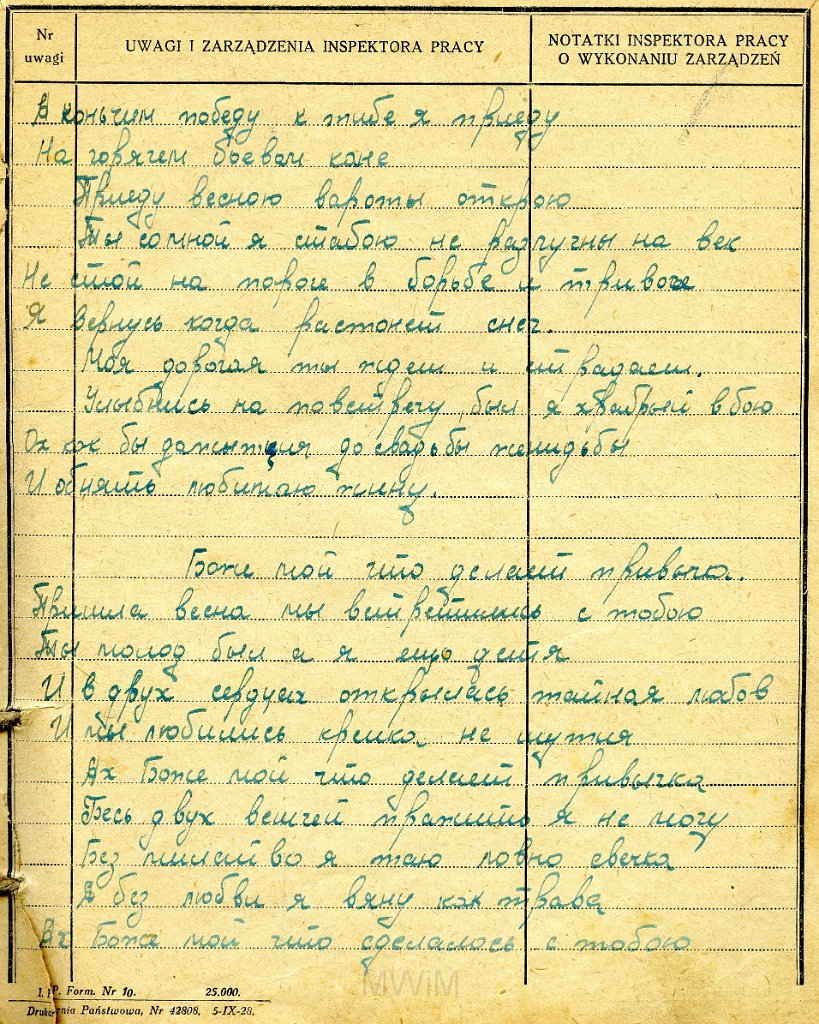 Nr uwagi
UWAGI I ZARZĄDZENIA INSPEKTORA PRACY
NOTATKI INSPEKTORA PRACY
O WYKONANIU ZARZĄDZEŃ
А коньчим победу к тибе я приеду
На горячем боевом коне
Приеду весною вароты открою
Ты сомной я стабою не разлучны на век
Не стой на пороге в борьбе и тривоге
Я вернусь когда растонеит снег.
Моя дорогая ты ждеш и страдаеш.
Улыбнись на повстречу был я храбрый в бою
Ох как бы до свадьбы женидьбы
И обнять любимаю жину.
Боже мой что делаеит привычка.
Пришла весна мы встретились с тобою
Ты молод был а я ещо детя
И в двух сердцах открылась тайная любов
И мы любились крепка не шутия
Ах Боже мой что делаеит привычка
Бесь двух вещей пражить я не могу
Без милайво я таю ловно свечка
А без любви я вяну как трава
Ах Боже мой что сделалось с тобою
MWiM
I. P. Form. Nr 10. 25.000.
Drukarnia Państwowa, Nr 42808. 5-IX-28.